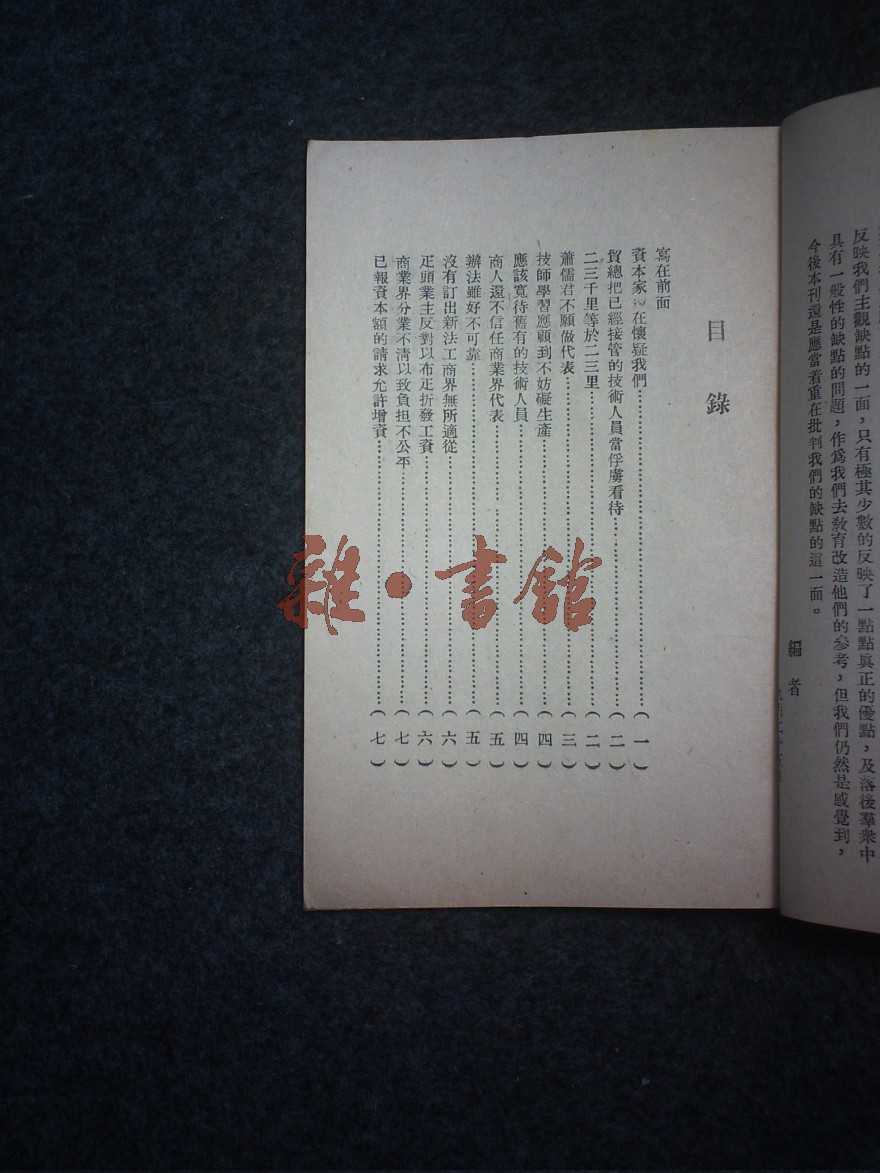 反映我們主觀缺點的一面，只有極其少數的反映了一點點眞正的優點，及落後羣衆中
具有一般性的缺點的問題，作爲我們去教育改造他們的參考，但我們仍然是感覺到，
今後本刊還是應當着重在批判我們的缺點的這一面。
編者
目錄
寫在前面
資本家在懷疑我們……（一）
貿總把已經接管的技術人員當俘虜看待……（二）
二三千里等於二三里……（二）
蕭儒君不願做代表……（三）
技師學習應顧到不妨礙生產……（四）
應該寬待舊有的技術人員……（四）
商人還不信任商業界代表……（五）
辦法雖好不可靠……（五）
沒有訂出新法工商界無所適從……（六）
疋頭業主反對以布疋折發工資……（六）
商業界分業不清以致負担不公平……（七）
已報資本額的請求允許增資……（七）
雜·書館